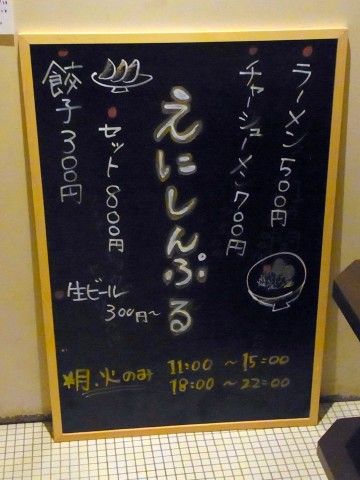 ラーメン 500円
チャーシューメン 700円
えにしんぷる
セット 800円
餃子 300円
生ビール
300円~
*月、火のみ
11:00 ~ 15:00
18:00 ~ 22:00